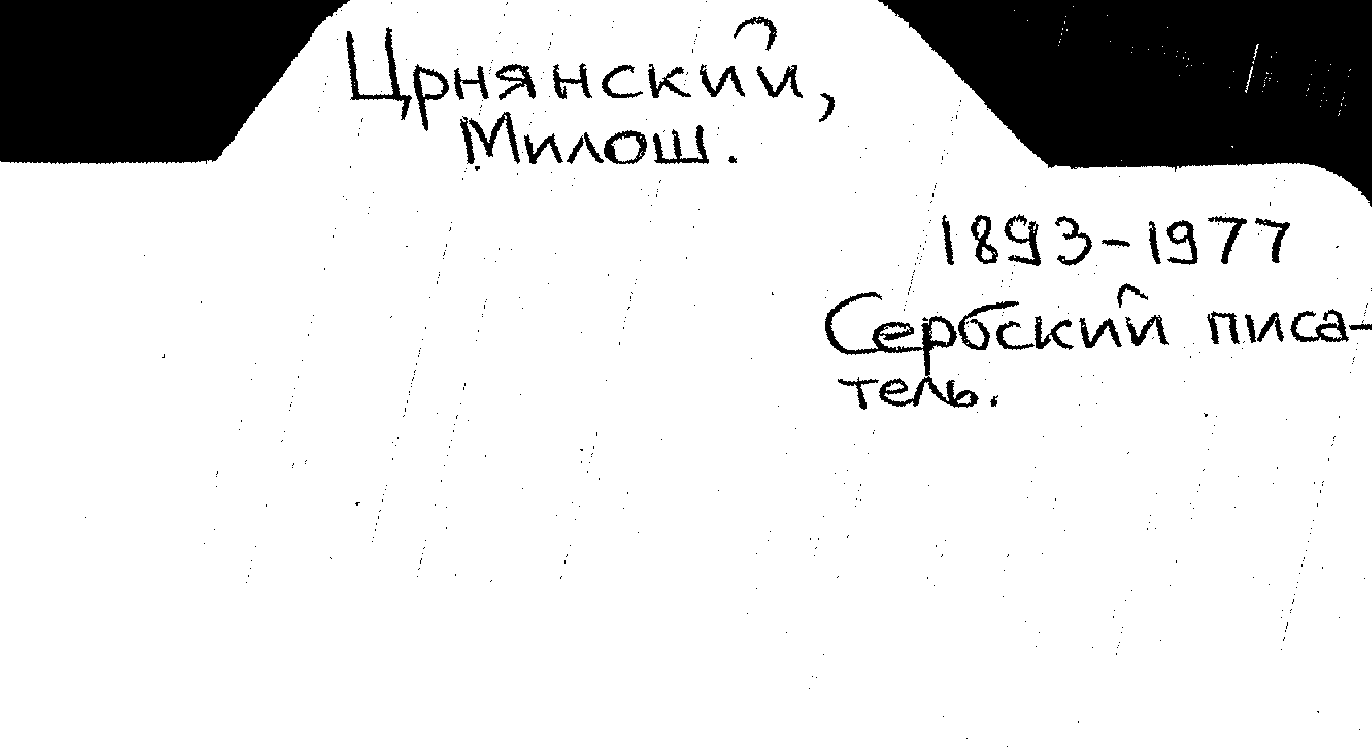 Црнянский,
Милош.
1893-1977
Сербский писа-
тель.